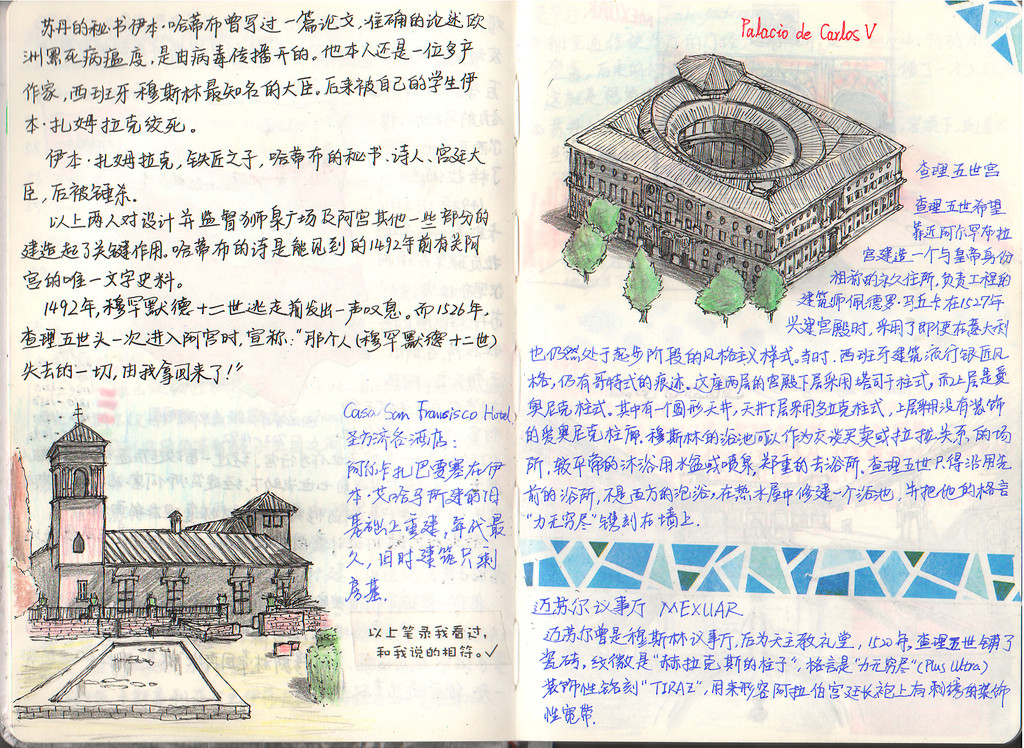 苏丹的秘书伊本·哈蒂布曾写过一篇论文，准确的论述欧
洲黑死病瘟疫，是由病毒传播开的。他本人还是一位多产
作家，西班牙穆斯林最知名的大臣。后来被自己的学生伊
本·扎姆拉克绞死。
伊本·扎姆拉克，铁匠之子，哈蒂布的秘书、诗人、宫廷大
臣，后被锤杀。
以上两人对设计并监督狮泉广场及阿宫其他一些部分的
建造起了关键作用。哈蒂布的诗是能见到的1492年前有关阿
宫的唯一文字史料。
1492年，穆罕默德十二世逃走前发出一声叹息。而1526年，
查理五世头一次进入阿宫时，宣称："那个人（穆罕默德十二世）
失去的一切，由我拿回来了！"
Casa San Francisco Hotel
圣方济各酒店：
阿尔卡扎巴要塞在伊
本·艾哈马所建的旧
基础上重建，年代最
久，旧时建筑只剩
房基.
以上笔录我看过，
和我说的相符。✓
Palacio de Carlos V
查理五世宫
查理五世希望
靠近阿尔罕布拉
宫建造一个与皇帝身份
相称的永久住所，负责工程的
建筑师佩德罗·马丘卡在1527年
兴建宫殿时，采用了即使在意大利
也仍然处于起步阶段的风格主义样式。当时，西班牙建筑流行银匠风
格，仍有哥特式的痕迹。这座两层的宫殿下层采用塔司干柱式，而上层是爱
奥尼克柱式。其中有一个圆形天井，天井下层采用多立克柱式，上层采用没有装饰
的爱奥尼克柱廊。穆斯林的浴池可以作为交谈买卖或拉拢关系的场
所，较平常的沐浴用水盆或喷泉，郑重的去浴所。查理五世只得沿用先
前的浴所，不是西方的泡浴，在热水屋中修建一个浴池，并把他的格言
"力无穷尽"镌刻在墙上.
迈苏尔议事厅 MEXUAR
迈苏尔曾是穆斯林议事厅，后为天主教礼堂，1520年，查理五世铺了
瓷砖，纹徽是"赫拉克斯的柱子"，格言是"力无穷尽"（Plus Ultra）
装饰性铭刻"TIRAZ"，用来形容阿拉伯宫廷长袍上有刺绣的装饰
性宽带.